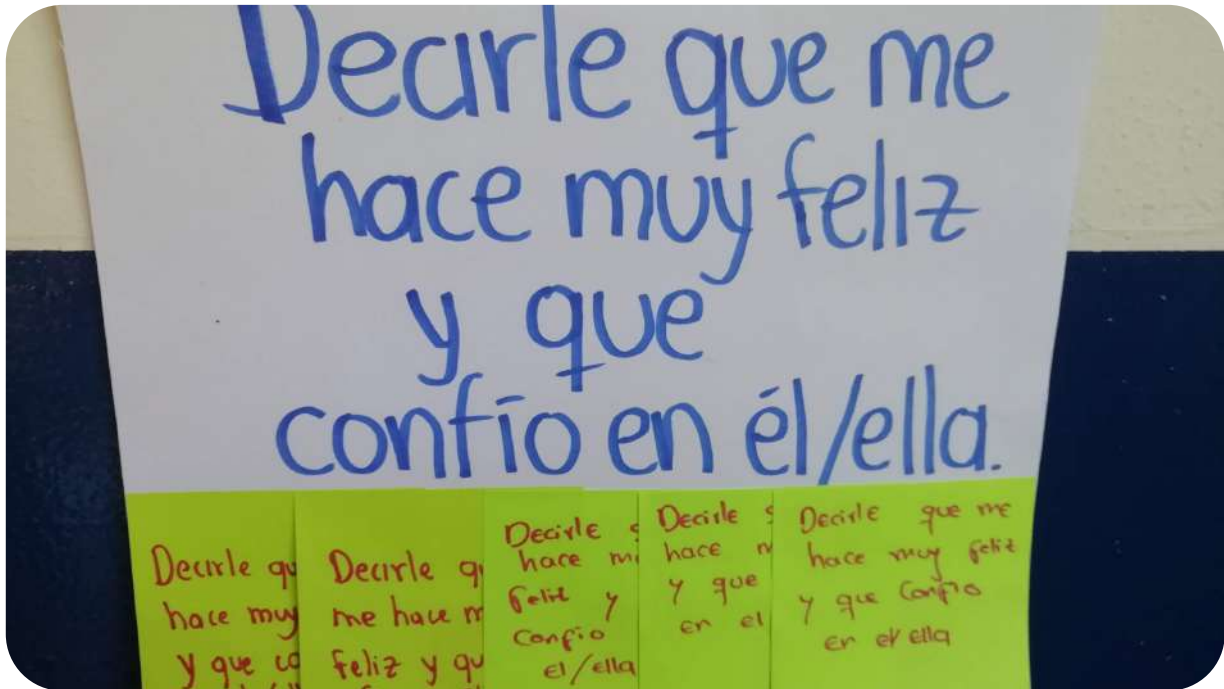 Decirle que me
hace muy feliz
y que
confío en él/ella.
Decirle qu
hace muy
y que co
Decirle q
me hace m
feliz y qu
Decirle
hace mi
feliz y
confio
el/ella
Decirle
hace m
y que
en el
Decirle que me
hace muy feliz
y que confio
en el ella